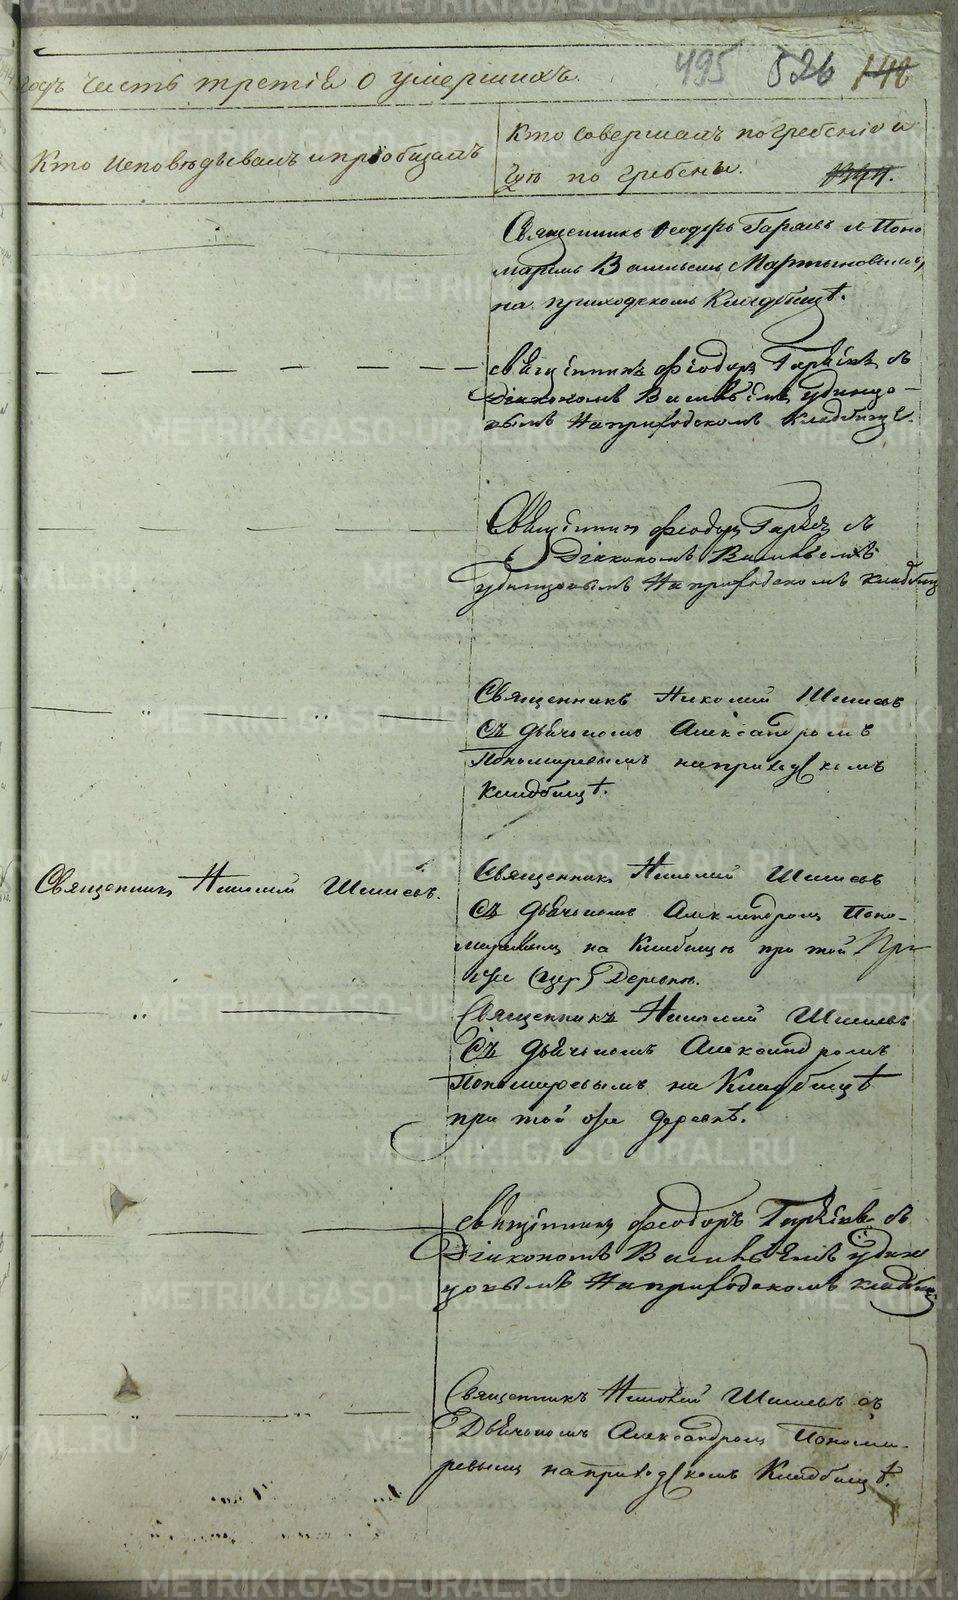 годъ часть третія о умершихъ.
495 526 148
Кто исповѣдывалъ и пріобщалъ
Кто совершалъ погребеніе и
гдѣ погребены.
Священникъ Феодоръ и Поно
маремъ Васильемъ Мартыновымъ,
на приходскомъ Кладбищѣ.
Священникъ Феодоръ съ
Діакономъ Васильемъ Удинцо-
вымъ На приходскомъ Кладбище.
Священникъ Феодоръ съ
Діакономъ Васильемъ
Удинцовымъ На приходскомъ кладбищ
Священникъ Николай Шишевъ
Съ дьячкомъ Александромъ
Пономаревымъ на приходскомъ
Кладбищѣ.
Священникъ Николай Шишевъ.
Священникъ Николай Шишевъ
Съ дьячкомъ Александромъ Поно-
маревымъ на Кладбищѣ при той
же Деревнѣ.
Священникъ Николай Шишевъ
Съ дьячкомъ Александромъ
Пономаревымъ на Кладбищѣ
при той же деревнѣ.
Священникъ Феодоръ съ
Діакономъ Васильемъ Удин
цовымъ На приходскомъ кладбищ
Священникъ Николай Шишевъ съ
Дьячкомъ Александромъ Понома-
ревымъ на приходскомъ Кладбищѣ.
METRIKI.GASO-URAL.RU